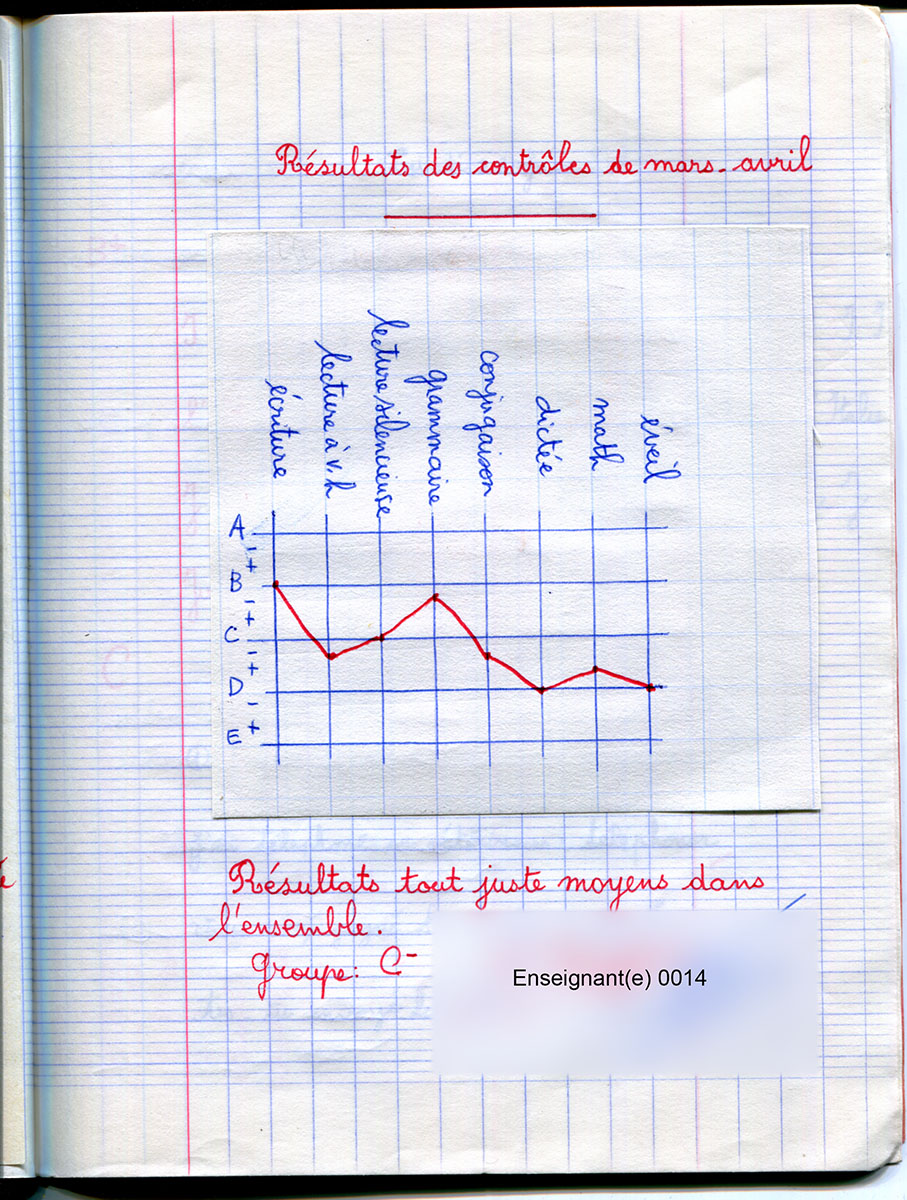 Résultats des contrôles de mars-avril
écriture
lecture à v.h
lecture silencieuse
grammaire
conjugaison
dictée
math
éveil
A
-
+
B
-
+
C
-
+
D
-
+
E
Résultats tout juste moyens dans
l'ensemble.
Groupe: C-
Enseignant(e) 0014